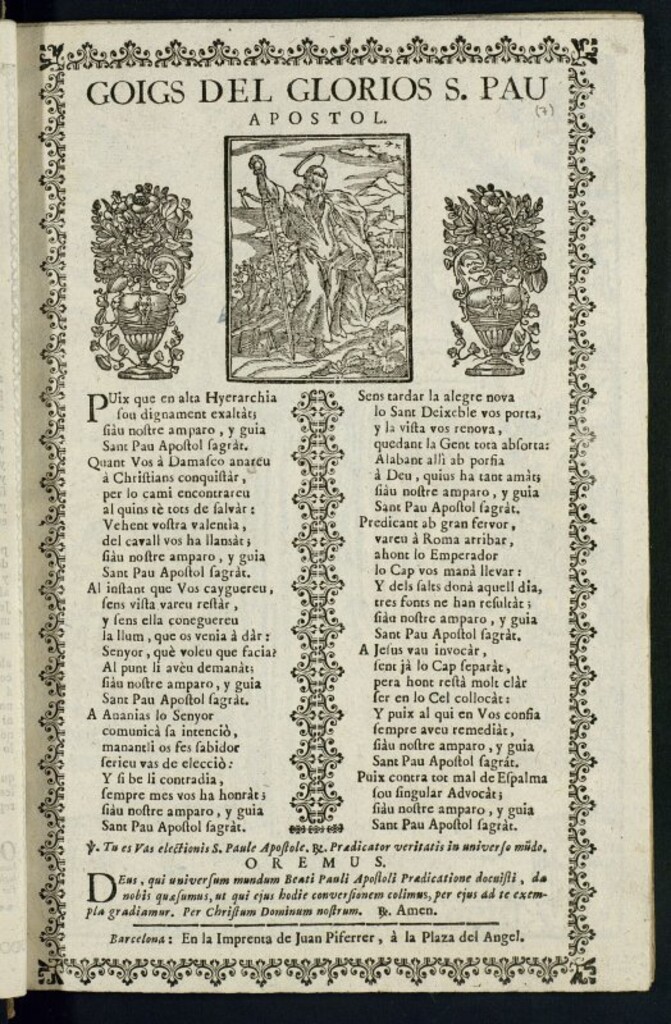 GOIGS DEL GLORIOS S. PAU
(7)
APOSTOL.
PUix que en alta Hyerarchia
sou dignament exaltàt;
siàu nostre amparo, y guia
Sant Pau Apostol sagràt.
Quant Vos à Damasco anareu
à Christians conquistàr,
per lo cami encontrareu
al quins tè tots de salvàr:
Vehent vostra valentia,
del cavall vos ha llansàt;
siàu nostre amparo, y guia
Sant Pau Apostol sagràt.
Al instant que Vos cayguereu,
sens vista vareu restàr,
y sens ella coneguereu
la llum, que os venia à dàr:
Senyor, què voleu que facia?
Al punt li avèu demanàt;
siàu nostre amparo, y guia
Sant Pau Apostol sagràt.
A Ananias lo Senyor
comunicà sa intenciò,
manantli os fes sabidor
serieu vas de elecciò:
Y si be li contradia,
sempre mes vos ha honràt;
siàu nostre amparo, y guia
Sant Pau Apostol sagràt.
Sens tardar la alegre nova
lo Sant Deixeble vos porta,
y la vista vos renova,
quedant la Gent tota absorta:
Alabant alli ab porfia
à Deu, quius ha tant amàt;
siàu nostre amparo, y guia
Sant Pau Apostol sagràt.
Predicant ab gran fervor,
vareu à Roma arribar,
ahont lo Emperador
lo Cap vos manà llevar:
Y dels salts donà aquell dia,
tres fonts ne han resultàt;
siàu nostre amparo, y guia
Sant Pau Apostol sagràt.
A Jesus vau invocàr,
sent jà lo Cap separàt,
pera hont restà molt clàr
ser en lo Cel collocàt:
Y puix al qui en Vos confia
sempre aveu remediàt,
siàu nostre amparo, y guia
Sant Pau Apostol sagràt.
Puix contra tot mal de Espalma
sou singular Advocàt;
siàu nostre amparo, y guia
Sant Pau Apostol sagràt.
℣. Tu es Vas electionis S. Paule Apostole. ℟. Prædicator veritatis in universo mũdo.
OREMUS.
DEus, qui universum mundum Beati Pauli Apostoli Prædicatione docuisti, da
nobis quæsumus, ut qui ejus hodie conversionem colimus, per ejus ad te exem-
pla gradiamur. Per Christum Dominum nostrum. ℟. Amen.
Barcelona: En la Imprenta de Juan Piferrer, à la Plaza del Angel.